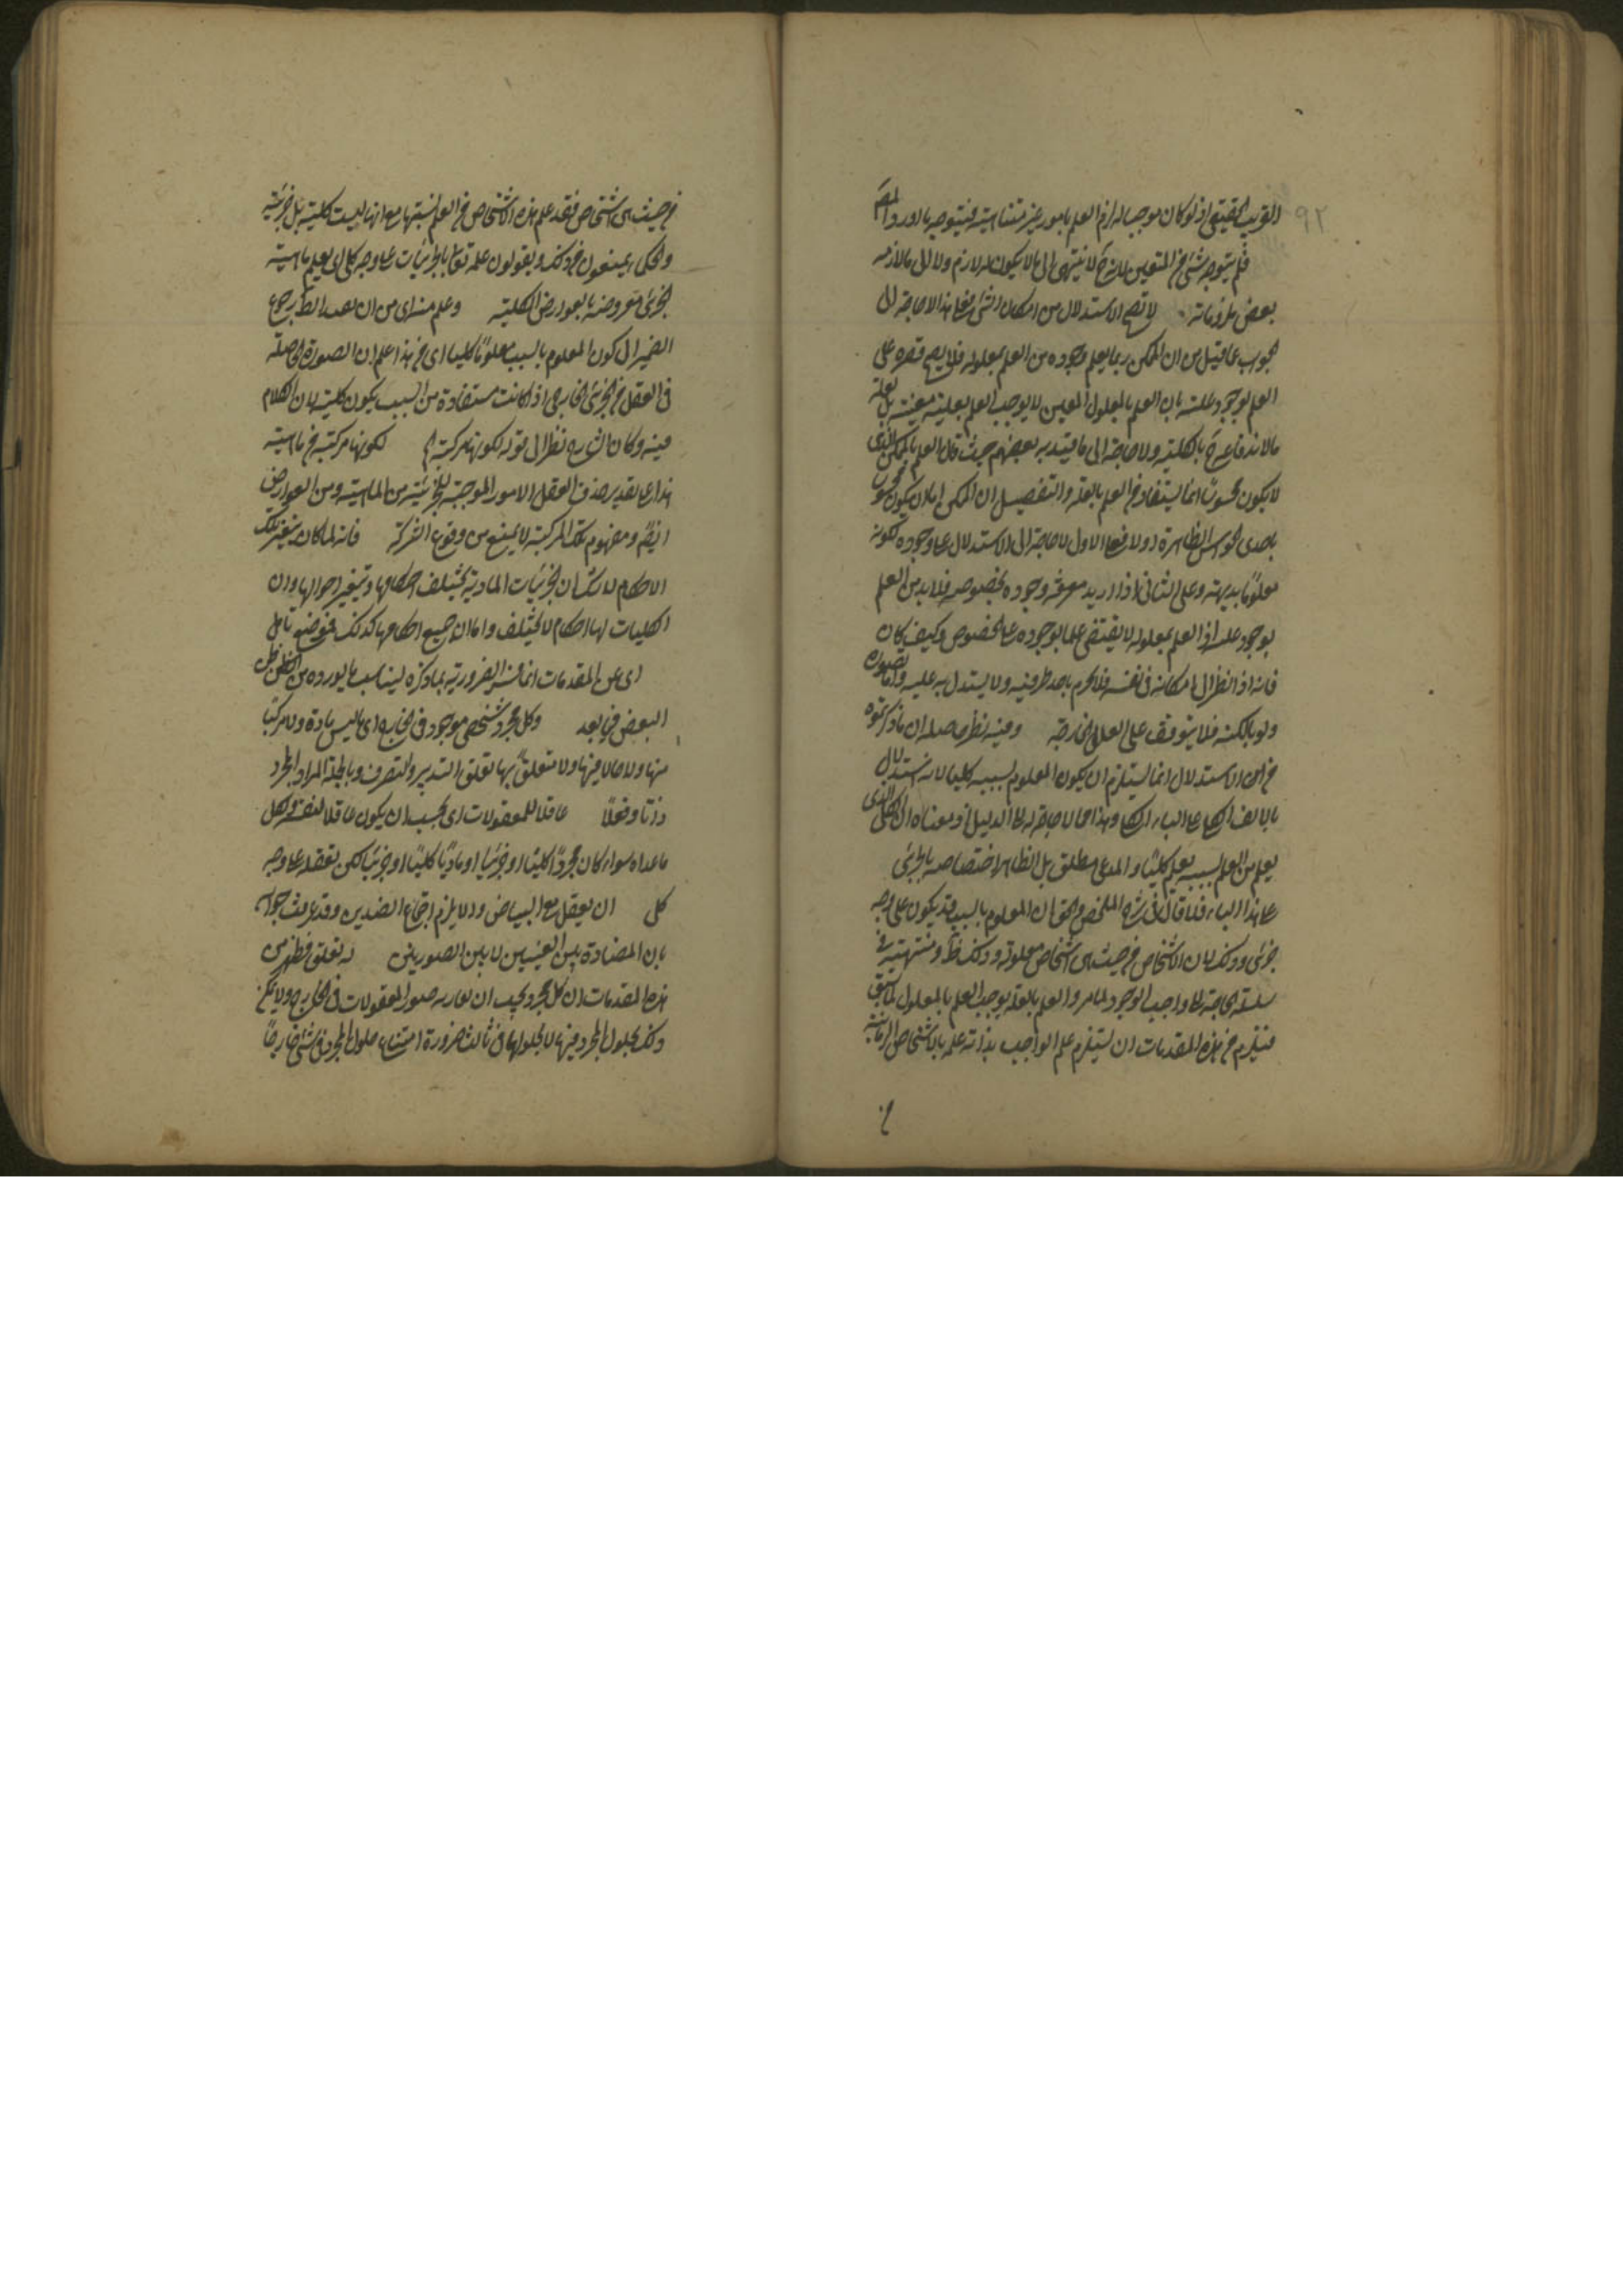 ٩٢
القريب الحقيقي اذ لو كان موجبا له لزم العلم بامور غير متناهية فيتوجه ما اورده المص
فلم يتوجه شئ من المنعين لانه ح لا ينتهى الى ما لا يكون له لازم ولا الى ما لازمه
بعض ملزوماته لا تصح الاستدلال من امكان الشئ فعلى هذا لا حاجة الى
الجواب عما قيل من ان الممكن ربما يعلم وجوده من العلم بمعلوله فلا يصح قصره على
العلم بوجود علته بان العلم بالمعلول المعين لا يوجب العلم بعلته معينة بل بعلة ما
لاندفاعه ح بالكلية ولا حاجة الى ما قيد به بعضهم حيث قال العلم بالممكن الذى
لا يكون محسوسا انما يستفاد من العلم بالعلة والتفصيل ان الممكن اما ان يكون محسوسا
باحدى الحواس الظاهرة اولا فعلى الاول لا حاجة الى الاستدلال على وجوده لكونه
معلوما بديهة وعلى الثانى اذا اريد معرفة وجوده بخصوصه فلا بد من العلم
بوجود علته اذ العلم بمعلوله لا يقتضى علما بوجوده على الخصوص وكيف كان
فانه اذا نظر الى امكانه فى نفسه فلا يجزم باحد طرفيه ولا يستدل به عليه واما تصوره
ولو بالكنه فلا يتوقف على العلل الخارجة وفيه نظر حاصله ان ما ذكرتموه
من الاستدلال انما يستلزم ان يكون المعلوم بسببه كليا لانه استدلال
يعلم من العلم بسببه يعلم كليا والمدعى مطلق بل الظاهر اختصاصه بالجزئى
على هذا الباء فلذا قال فى شرح الملخص والحق ان المعلوم بالسبب قد يكون على وجه
جزئى وذلك لان الاشخاص من حيث هى اشخاص معلولة وذلك ظ ومنتهية فى
سلسلة الحاجة الى واجب الوجود لما مر والعلم بالعلة يوجب العلم بالمعلول لما سبق
فيلزم من هذه المقدمات ان يستلزم علم الواجب بذاته علمه بالاشخاص الزمانية
من
من حيث هى اشخاص فقد علم هذه الاشخاص من العلم بسببها مع انها ليست كلية بل جزئية
والحكماء يمنعون من ذلك ويقولون علمه تعالى بالجزئيات على وجه كلى اى يعلم ماهية
الجزئى معروضة بالعوارض الكلية وعلم منه اى من ان
الضمير الى كون المعلوم بالسبب معلوما كليا اى من هذا علم ان الصورة الحاصلة
فى العقل من الجزئى الخارجى اذا كانت مستفادة من السبب يكون كلية لان الكلام
فيه وكان الشارح نظر الى قوله لكونها مركبة لكونها مركبة من ماهية
هذا على تقدير حذف العقل الامور الموجبة للجزئية من الماهية ومن العوارض
ايضا ومفهوم تلك المركبة لا يمنع من وقوع الشركة فانه لما كان يتغير تلك
الاحكام لا شك ان الجزئيات المادية يختلف احكامها ويتغير احوالها وان
الكليات لها احكام لا تختلف واما ان جميع احكامها كذلك فموضع تأمل
اى عن المقدمات انما فسر الضرورية بما ذكره ليناسب ما يورده من النظر على
البعض فيما بعد وكل مجرد شخصى موجود فى الخارج اى ما ليس بمادة ولا مركبا
منها ولا حالا فيها ولا متعلقا بها تعلق التدبير والتصرف وبالجملة المراد المجرد
ذاتا وفعلا عاقلا للمعقولات اى يجب ان يكون عاقلا لنفسه ولكل
ما عداه سواء كان مجردا كليا او جزئيا او ماديا كليا او جزئيا لكن تعقله على وجه
كلى ان يعقل مع البياض والا يلزم اجتماع الضدين وقد عرفت جوابه
بان المضادة بين العينيين لا بين الصورتين له تعلق فظهر من
هذه المقدمات ان كل مجرد يجب ان يقارنه صور المعقولات فى الخارج ولا يمكن
ذلك بحلول المجرد فيها لا بحلولهما فى ثالث ضرورة امتناع حلول المجرد فى شئ خارجا